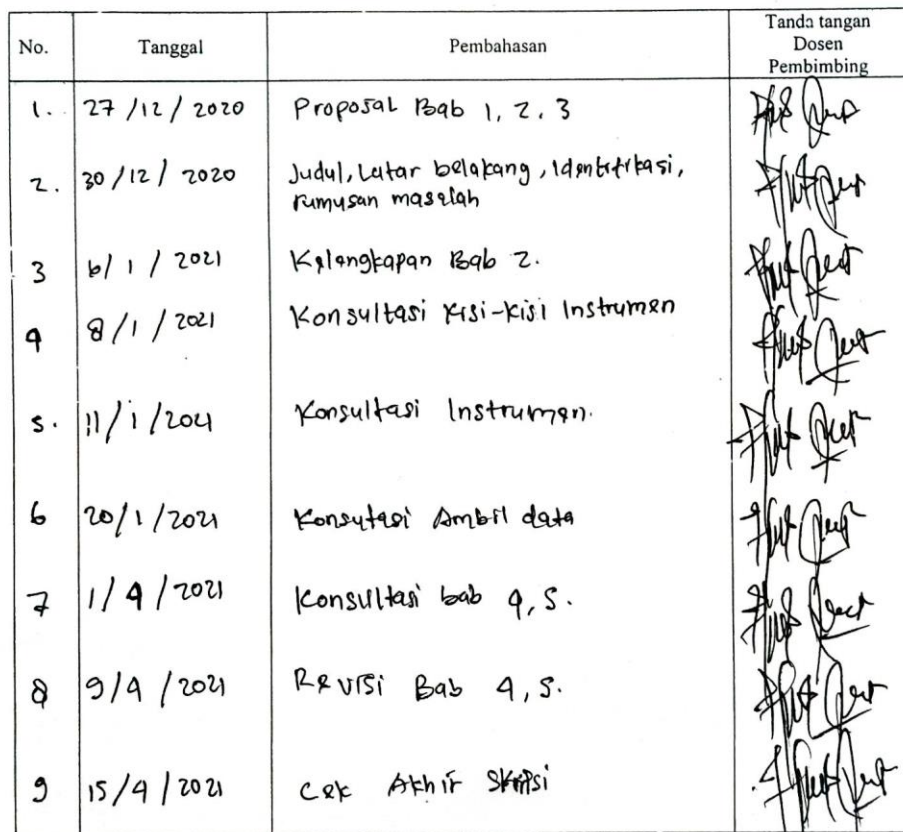 No. Tanggal Pembahasan Tanda tangan
Dosen
Pembimbing
1. 27/12/2020 Proposal Bab 1, 2, 3
2. 30/12/2020 Judul, Latar belakang, Identifikasi,
rumusan masalah
3 6/1/2021 Kelengkapan Bab 2.
4 8/1/2021 Konsultasi Kisi-kisi Instrumen
5. 11/1/2021 Konsultasi Instrumen.
6 20/1/2021 Konsutasi Ambil data
7 1/4/2021 Konsultasi bab 4, 5.
8 9/4/2021 Revisi Bab 4, 5.
9 15/4/2021 Cek Akhir Skripsi